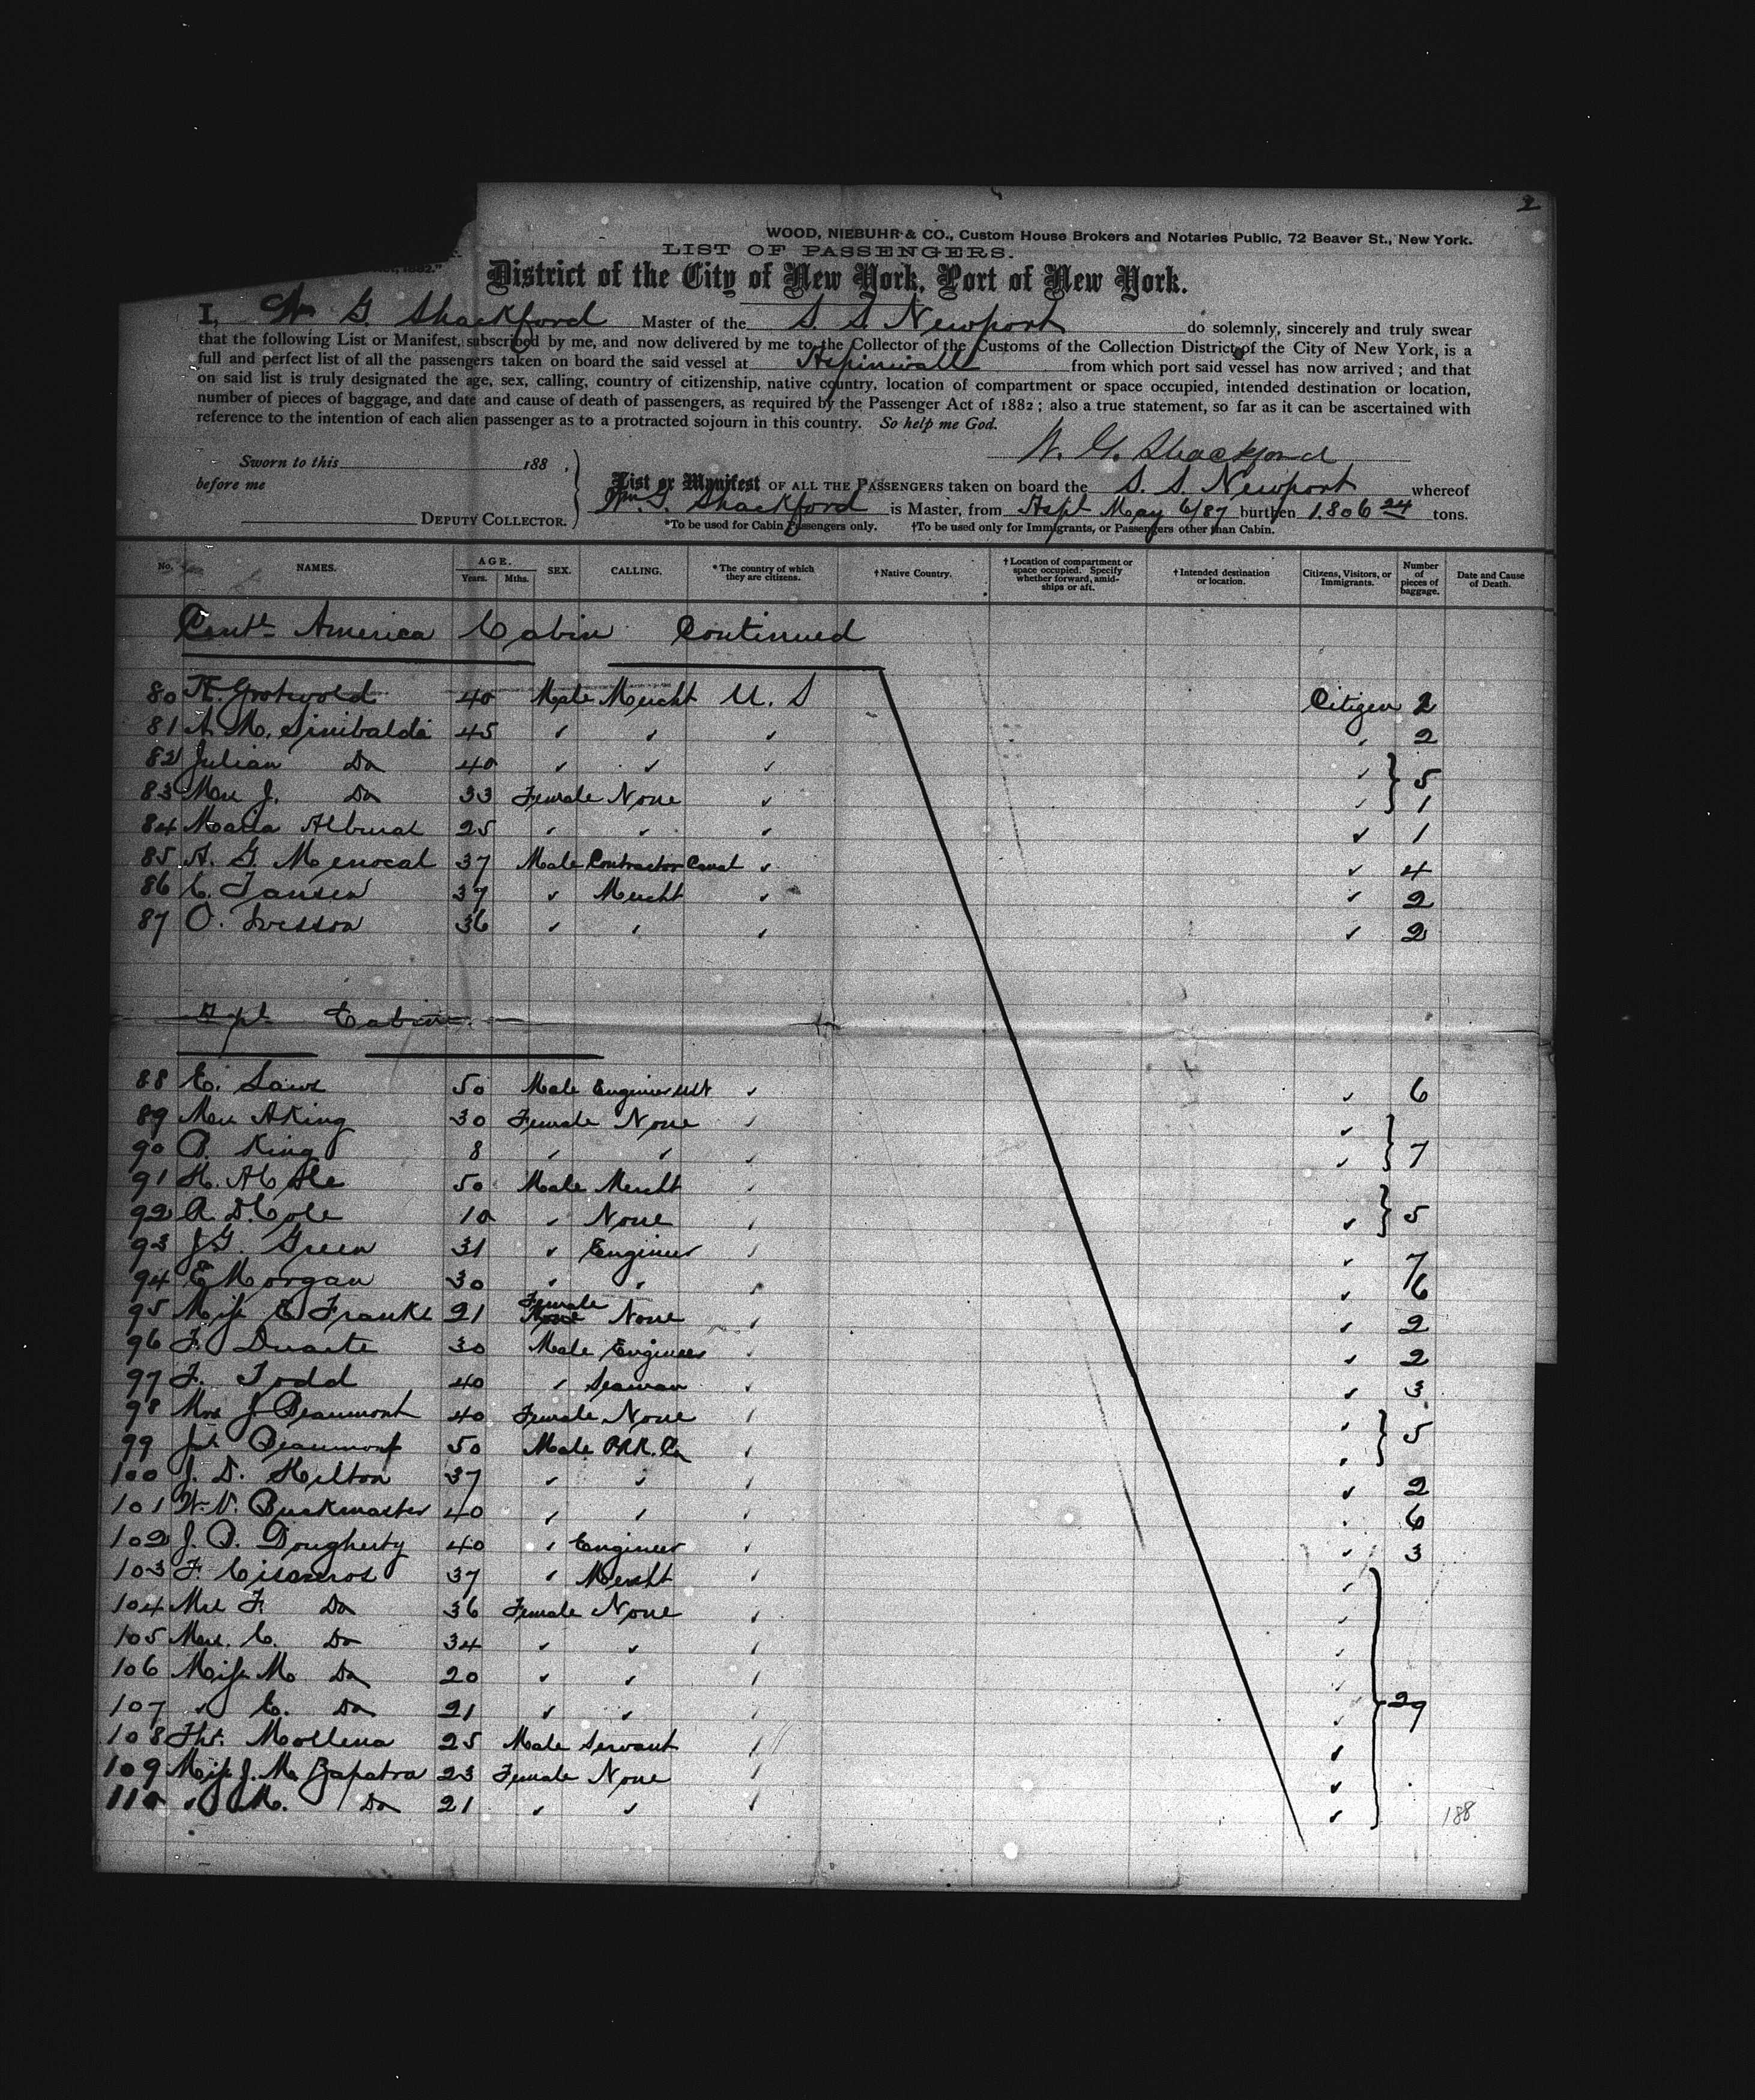 2
WOOD, NIEBUHR & CO., Custom House Brokers and Notaries Public, 72 Beaver St., New York.
LIST OF PASSENGERS.
1882."
District of the City of New York, Port of New York.
I, W G. Shackford Master of the S. S. Newport do solemnly, sincerely and truly swear
that the following List or Manifest, subscribed by me, and now delivered by me to the Collector of the Customs of the Collection District of the City of New York, is a
full and perfect list of all the passengers taken on board the said vessel at Aspinwall from which port said vessel has now arrived; and that
on said list is truly designated the age, sex, calling, country of citizenship, native country, location of compartment or space occupied, intended destination or location,
number of pieces of baggage, and date and cause of death of passengers, as required by the Passenger Act of 1882; also a true statement, so far as it can be ascertained with
reference to the intention of each alien passenger as to a protracted sojourn in this country. So help me God.
W. G. Shackford
Sworn to this 188 .
before me
DEPUTY COLLECTOR.
List or Manifest OF ALL THE PASSENGERS taken on board the S. S. Newport whereof
Wm. G. Shackford is Master, from Aspl May 6/87 burthen 1.806 24 tons.
*To be used for Cabin Passengers only. †To be used only for Immigrants, or Passengers other than Cabin.
No. NAMES. AGE. Years. Mths. SEX. CALLING. *The country of which they are citizens. †Native Country. †Location of compartment or space occupied. Specify whether forward, amidships or aft. †Intended destination or location. Citizens, Visitors, or Immigrants. Number of pieces of baggage. Date and Cause of Death.
Centl America Cabin Continued
80 40 Male Mercht U. S Citizen 2
81 A. M. Sinibaldi 45 2
82 Julian Do 40 5
83 Mrs J. Do 33 Female None 1
84 Maria 25 1
85 A. G. Menocal 37 Male Contractor Canal 4
86 C. Jansen 37 Mercht 2
87 O. 36 2
Aspl Cabin.
88 E. Laws 50 Male Engineer USN 6
89 Mrs A King 30 Female None
90 B. King 8 7
91 H. A Cole 50 Male Mercht
92 A. D. Cole 10 None 5
93 J G. Green 31 Engineer 7
94 E Morgan 30 6
95 Miss E Franks 21 Female None None 2
96 F. Duarte 30 Male Engineer 2
97 F. Todd 40 Seaman 3
98 Mrs J. Beaumont 40 Female None
99 Beaumont 50 Male P.R.R. Co 5
100 J. D. Hilton 37 2
101 W. V. Buckmaster 40 6
102 J. B. Dougherty 40 Engineer 3
103 F. Cisneros 37 Mercht
104 Mrs F. Do 36 Female None
105 Mrs. C. Do 34
106 Miss M Do 20
107 " C. Do 21 29
108 Thos. Mollena 25 Male Servant
109 Miss J. M. Zapatra 23 Female None
110 " M. Do 21
188